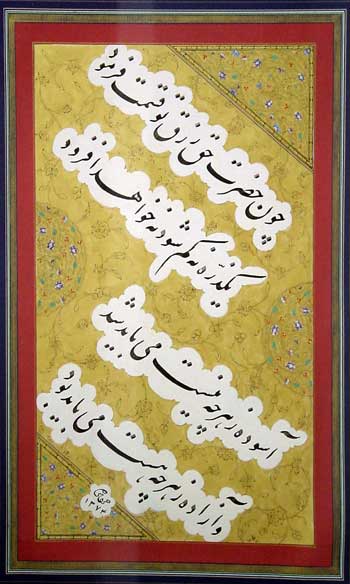 چون حضرت حق رزق تو قسمت فرمود
یکذره نه کم شود نه خواهد افزود
آسوده ز هر چه نیست می باید شد
وآزاده ز هر چه هست می باید بود